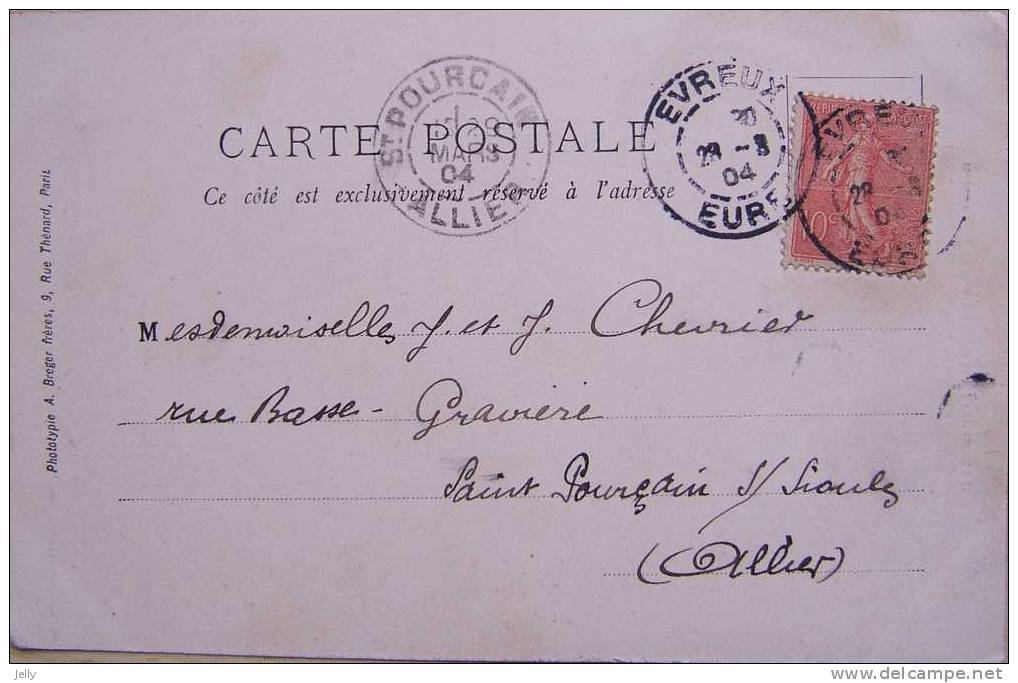 CARTE POSTALE
Ce côté est exclusivement réservé à l'adresse
ST POURCAIN
29
MARS
04
ALLIER
EVREUX
28 -3
04
EURE
EVRE
28
04
Mesdemoiselles J. et J. Chevrier
rue Basse - Gravière
Saint Pourçain s/ Sioule
(Allier)
Phototypie A. Breger frères, 9, Rue Thénard, Paris
jelly
delcampe.net